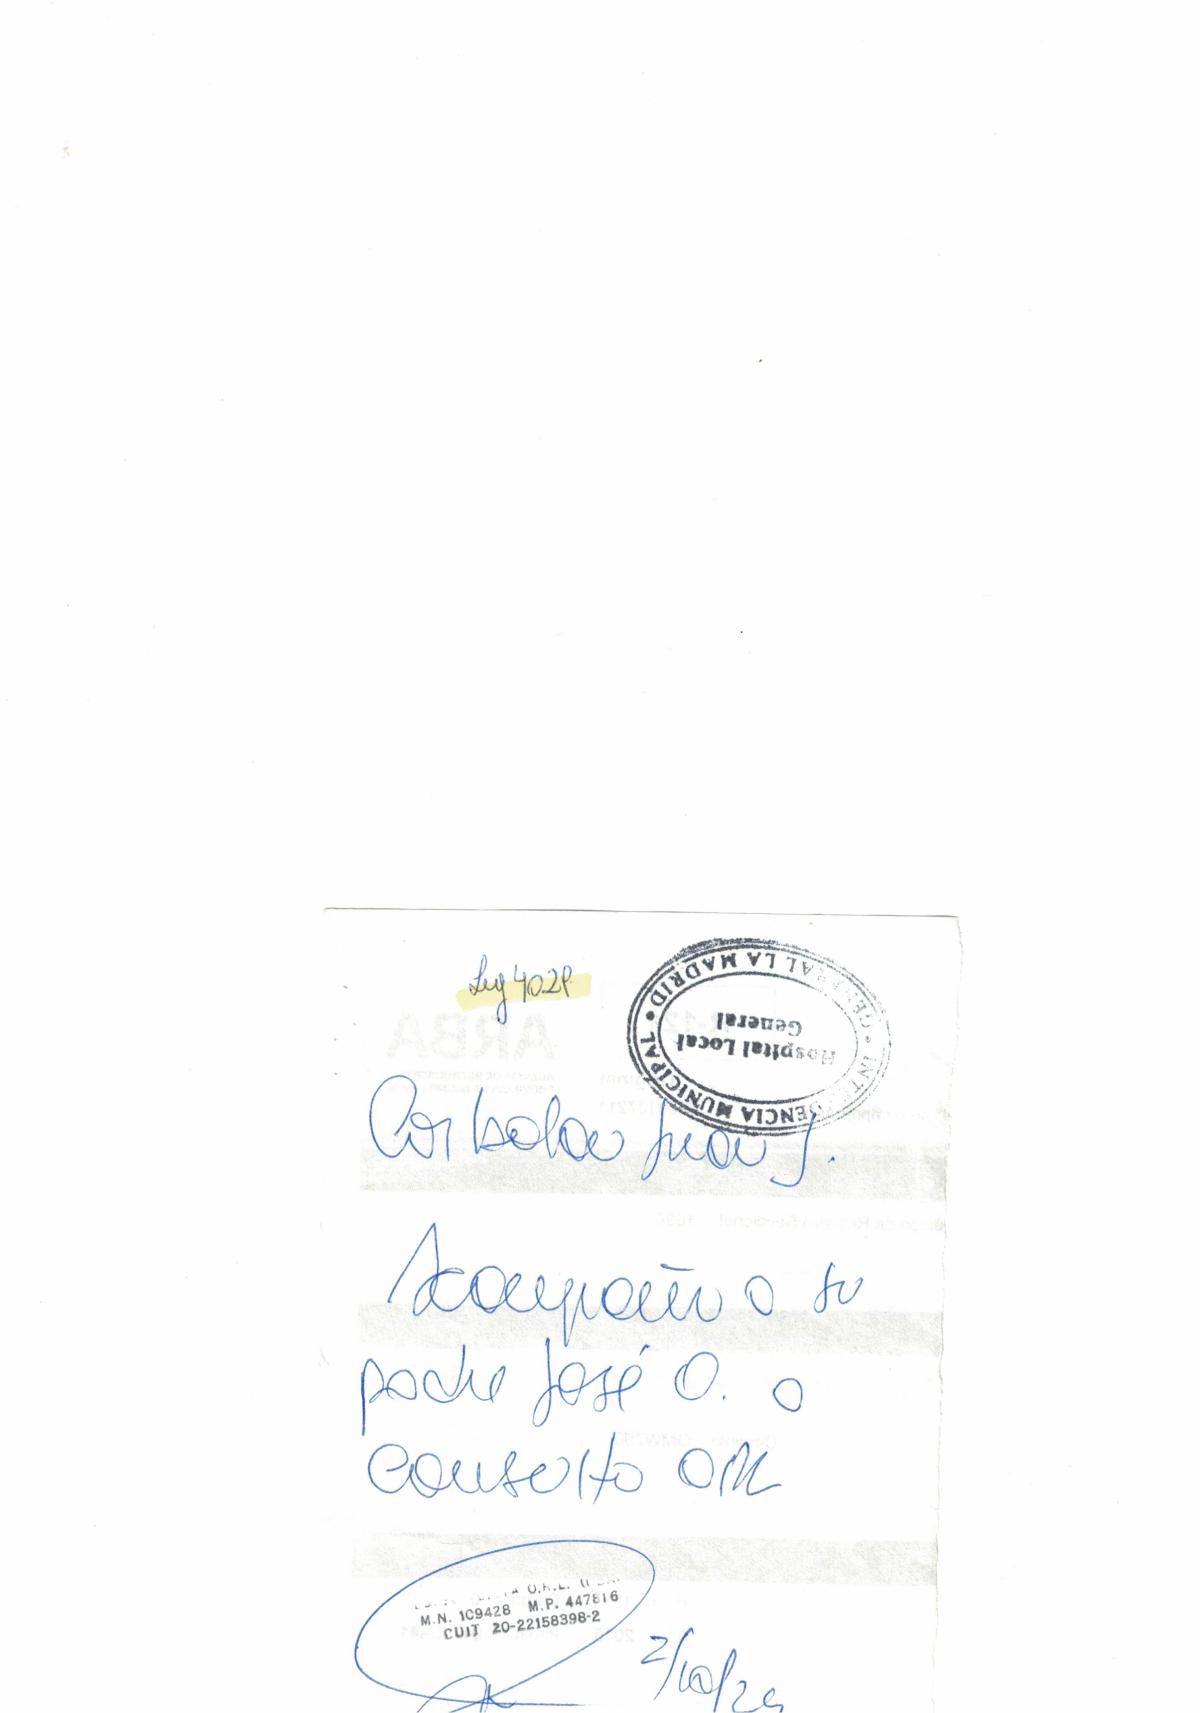 Leg 4029
INTENDENCIA MUNICIPAL • GENERAL LA MADRID •
Hospital Local
General
ARBA
Corbalan Juan J.
Acompaño a su
padre José O. a
consulta ORL
O.R.L.
M.N. 109428 M.P. 447816
CUIT 20-22158398-2
2/10/24